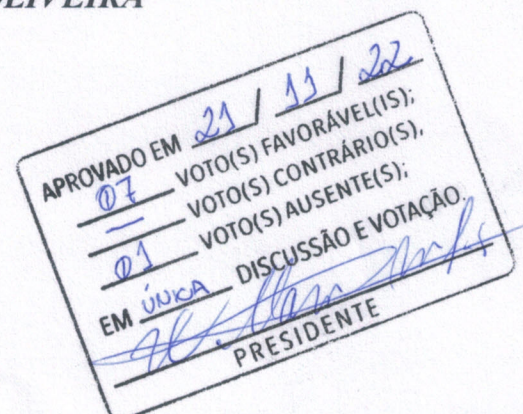 OLIVEIRA
APROVADO EM 21 / 11 / 22
07 VOTO(S) FAVORÁVEL(IS);
— VOTO(S) CONTRÁRIO(S),
01 VOTO(S) AUSENTE(S);
EM ÚNICA DISCUSSÃO E VOTAÇÃO.
PRESIDENTE